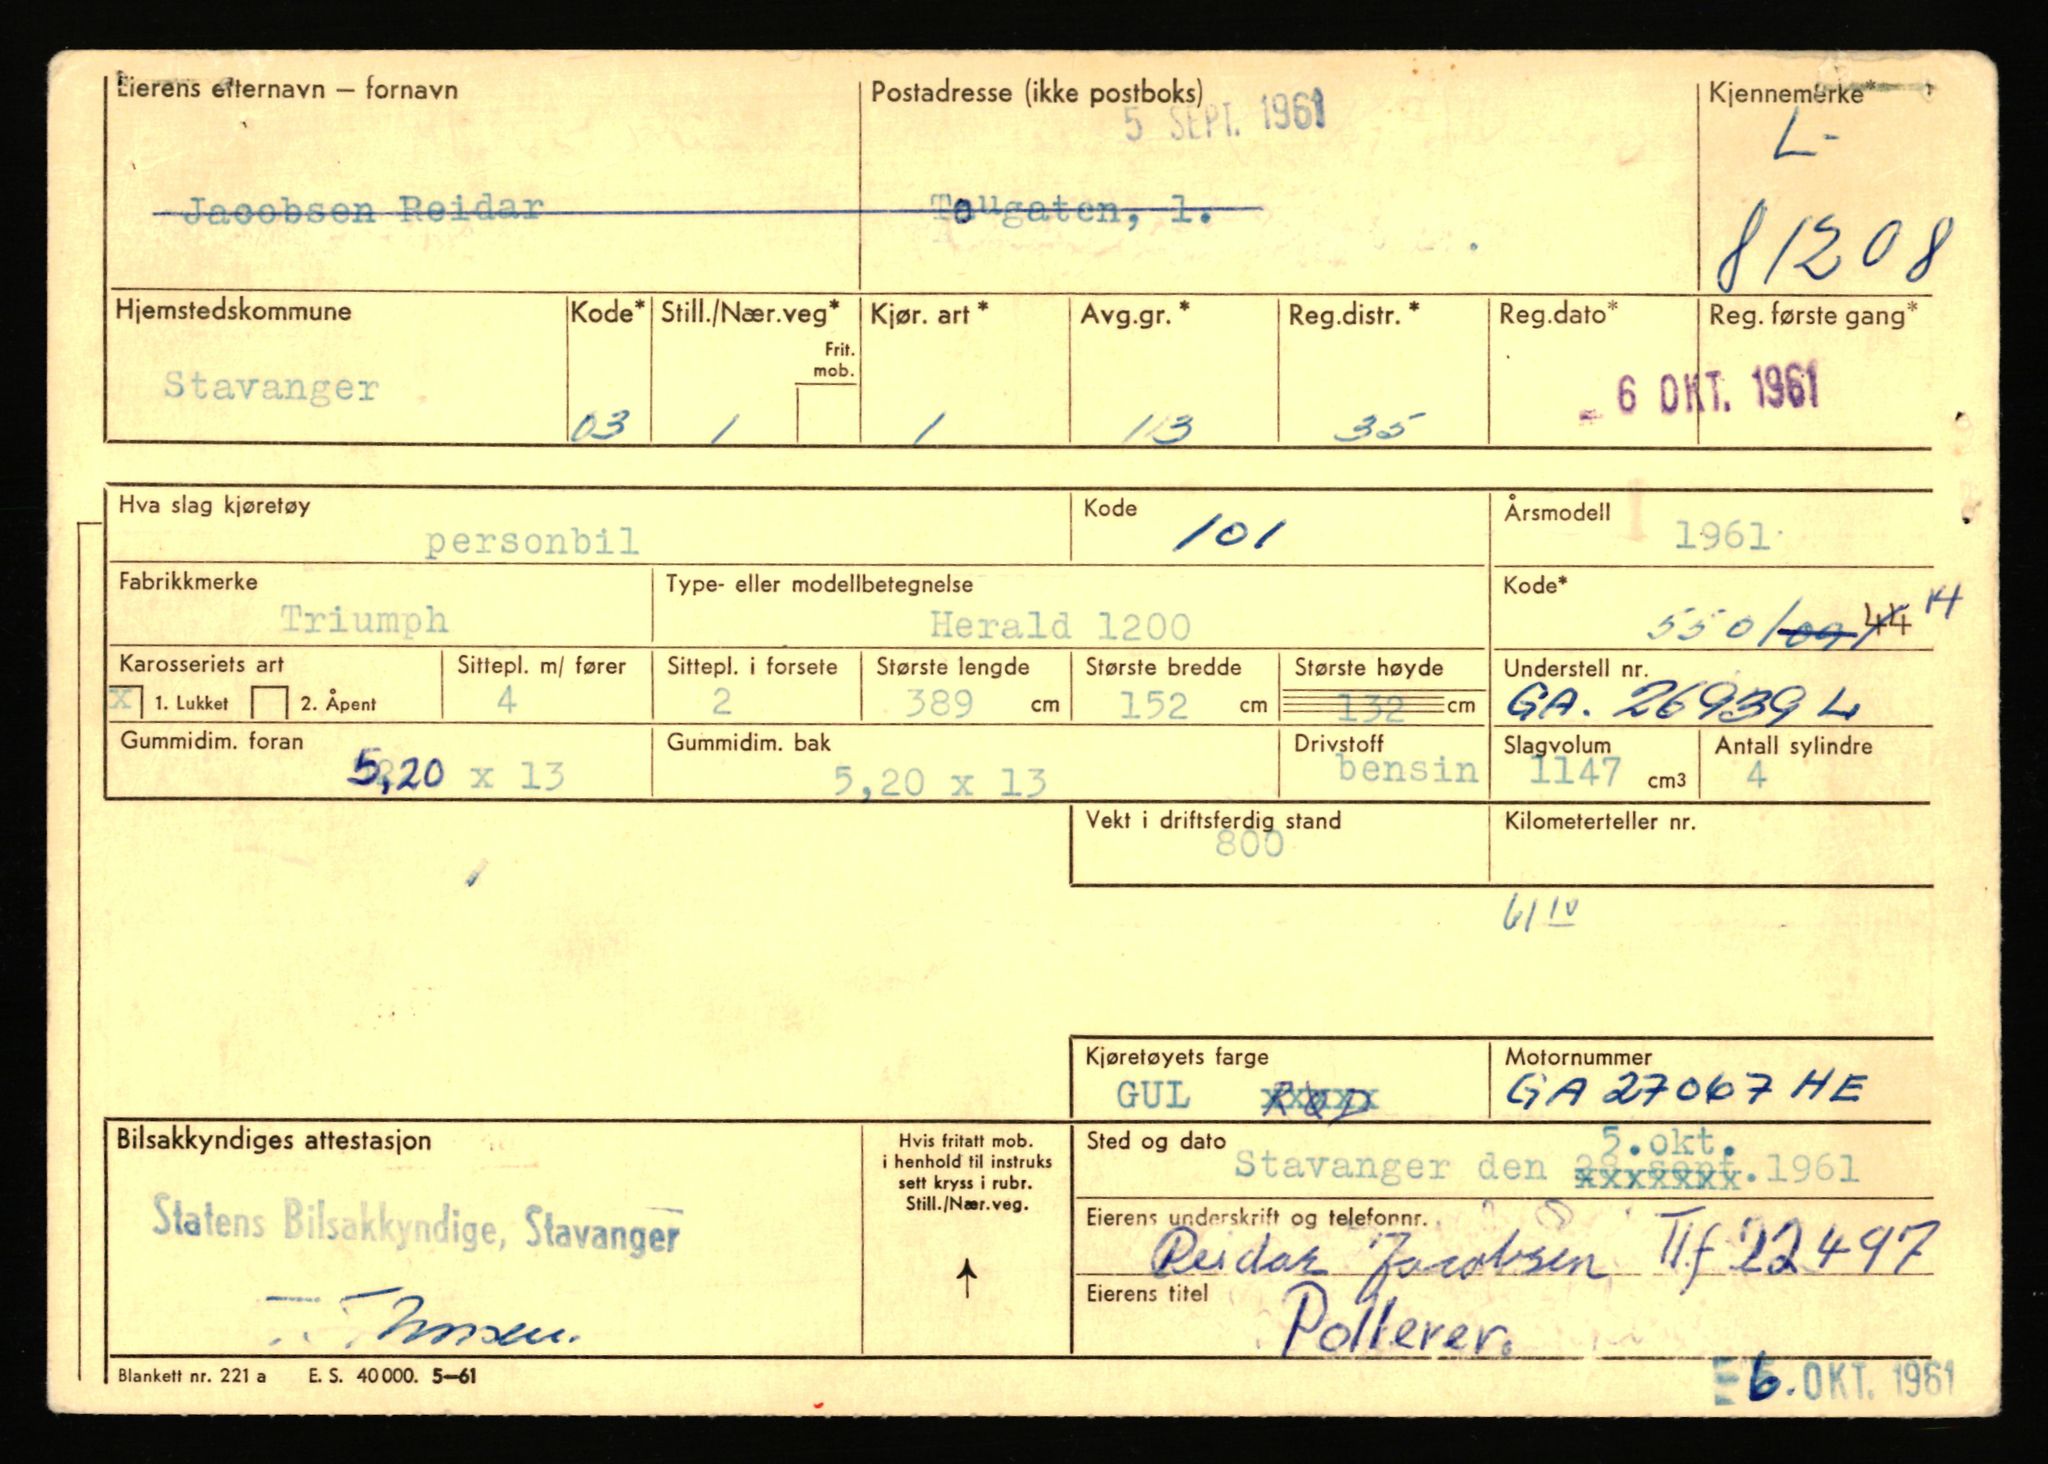 Eierens etternavn – fornavn Postadresse (ikke postboks) Kjennemerke*
5 SEPT. 1961
L-
Jacobsen Reidar Tougaten, 1.
81208
Hjemstedskommune Kode* Still./Nær.veg* Kjør. art* Avg.gr.* Reg.distr.* Reg.dato* Reg. første gang*
Frit.
mob.
Stavanger
- 6 OKT. 1961
03 1 1 113 35
Hva slag kjøretøy Kode Årsmodell
personbil 101 1961
Fabrikkmerke Type- eller modellbetegnelse Kode*
Triumph Herald 1200 550/ 44 14
Karosseriets art Sittepl. m/ fører Sittepl. i forsete Største lengde Største bredde Største høyde Understell nr.
x 1. Lukket 2. Åpent 4 2 389 cm 152 cm 132 cm GA. 26939 L
Gummidim. foran Gummidim. bak Drivstoff Slagvolum Antall sylindre
5,20 x 13 5,20 x 13 bensin 1147 cm3 4
Vekt i driftsferdig stand Kilometerteller nr.
800
61 IV
Kjøretøyets farge Motornummer
GUL RØD GA 27067 HE
Bilsakkyndiges attestasjon
Hvis fritatt mob.
i henhold til instruks
sett kryss i rubr.
Still./Nær.veg.
Sted og dato
5.okt.
Stavanger den xxxxxxx.1961
Statens Bilsakkyndige, Stavanger
Eierens underskrift og telefonnr.
Reidar Jacobsen Tlf 22497
Eierens titel
Pollerer.
Blankett nr. 221 a E. S. 40 000. 5–61
6. OKT. 1961